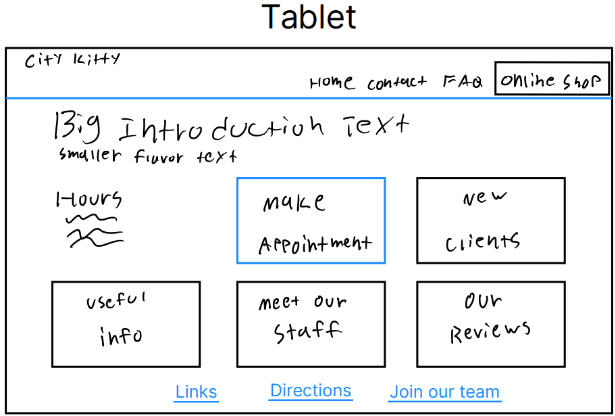 Tablet
City Kitty
Home contact FAQ Online Shop
Big Introduction Text
smaller flavor text
Hours
Make
Appointment
New
Clients
useful
info
meet our
Staff
Our
Reviews
Links Directions Join our team